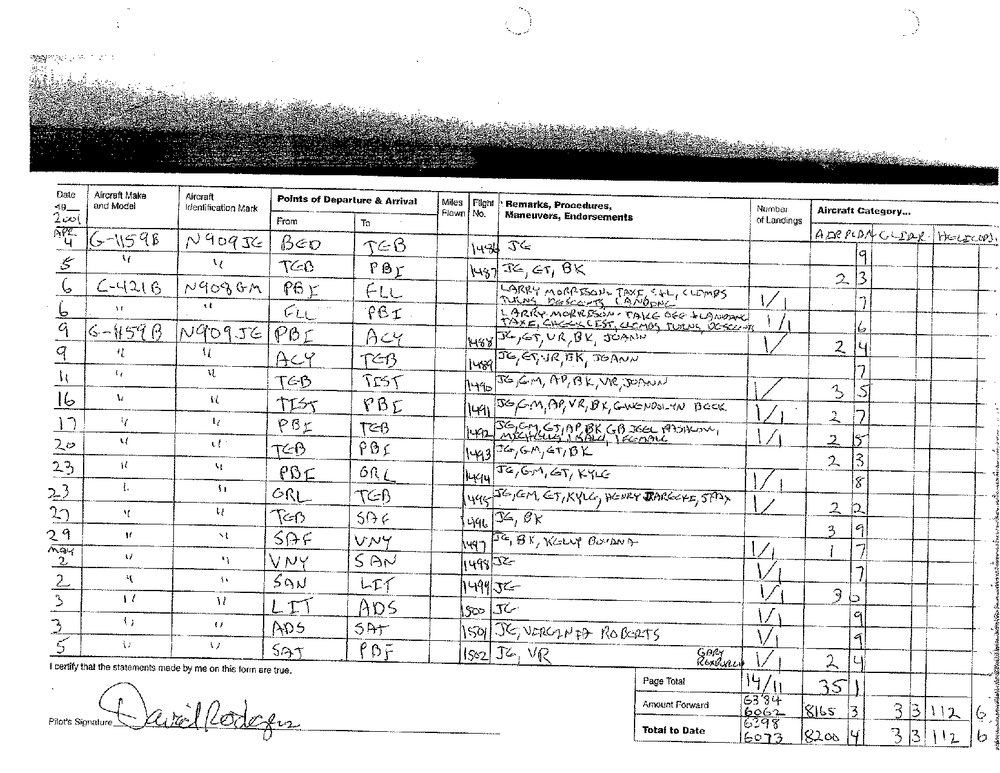 Date Aircraft Make and Model Aircraft Identification Mark Points of Departure & Arrival Miles Flown Flight No. Remarks, Procedures, Maneuvers, Endorsements Number of Landings Aircraft Category...
19__ 2001 From To AIRPLAN GLIDR. HELICOPT.
APR 4 G-1159B N909JE BED TEB 1486 JE 9
5 " " TEB PBI 1487 JE, ET, BK 2 3
6 C-421B N908GM PBI FLL LARRY MORRISON- TAXI, CLIMBS 1/1 7
TURNS DESCENTS, LANDING
6 " " FLL PBI LARRY MORRISON- TAKE OFF + LANDING 1/1 6
TAXI, CHECKLIST, CLIMBS, TURNS, DESCENTS
9 G-1159B N909JE PBI ACY 1488 JE, ET, VR, BK, JOANN 1/ 2 4
9 " " ACY TEB 1489 JE, ET, VR, BK, JOANN 7
11 " " TEB TIST 1490 JE, GM, AP, BK, VR, JOANN 1/ 3 5
16 " " TIST PBI 1491 JE, GM, AP, VR, BK, GWENDOLYN BECK 1/1 2 7
17 " " PBI TEB 1492 JE, GM, ET, AP, BK, GB JOEL 1/1 2 5
1 FEMALE
20 " " TEB PBI 1493 JE, GM, ET, BK 2 3
23 " " PBI ORL 1494 JE, GM, ET, KYLE 1/1 8
23 " " ORL TEB 1495 JE, GM, ET, KYLE, HENRY 1/ 2 2
27 " " TEB SAF 1496 JE, BK 3 9
29 " " SAF VNY 1497 JE, BK, KELLY 1/1 1 7
MAY 2 " " VNY SAN 1498 JE 1/1 7
2 " " SAN LIT 1499 JE 3 0
3 " " LIT ADS 1500 JE 1/1 9
3 " " ADS SAT 1501 JE, VIRGINIA ROBERTS 1/1 9
5 " " SAT PBI 1502 JE, VR GARY ROXBURGH 1/1 2 4
I certify that the statements made by me on this form are true.
Page Total 14/11 35 1
Amount Forward 6384 6062 8165 3 3 3 112 6
Pilot's Signature David Rodgers
Total to Date 6398 6073 8200 4 3 3 112 6